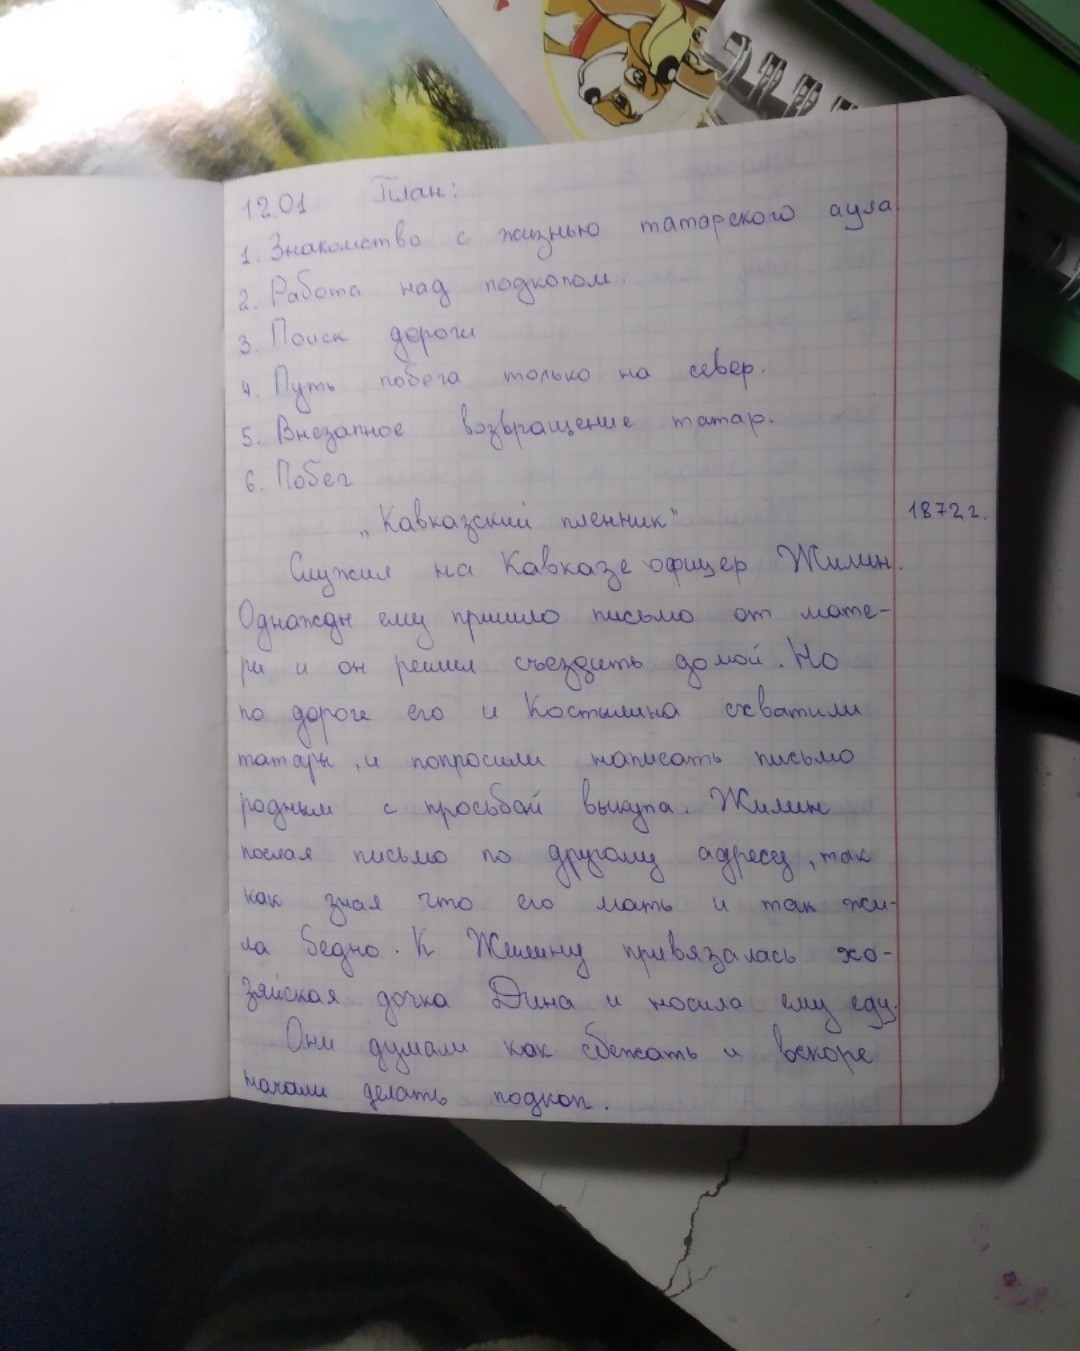 12.01 План:
1. Знакомство с жизнью татарского аула
2. Работа над подкопом.
3. Поиск дороги
4. Путь побега только на север.
5. Внезапное возвращение татар.
6. Побег
„Кавказский пленник" 1872 г.
Служил на Кавказе офицер Жилин.
Однажды ему пришло письмо от мате-
ри и он решил съездить домой. Но
по дороге его и Костылина схватили
татары, и попросили написать письмо
родным с просьбой выкупа. Жилин
послал письмо по другому адресу, так
как знал что его мать и так жи-
ла бедно. К Жилину привязалась хо-
зяйская дочка Дина и носила ему еду.
Они думали как сбежать и вскоре
начали делать подкоп.